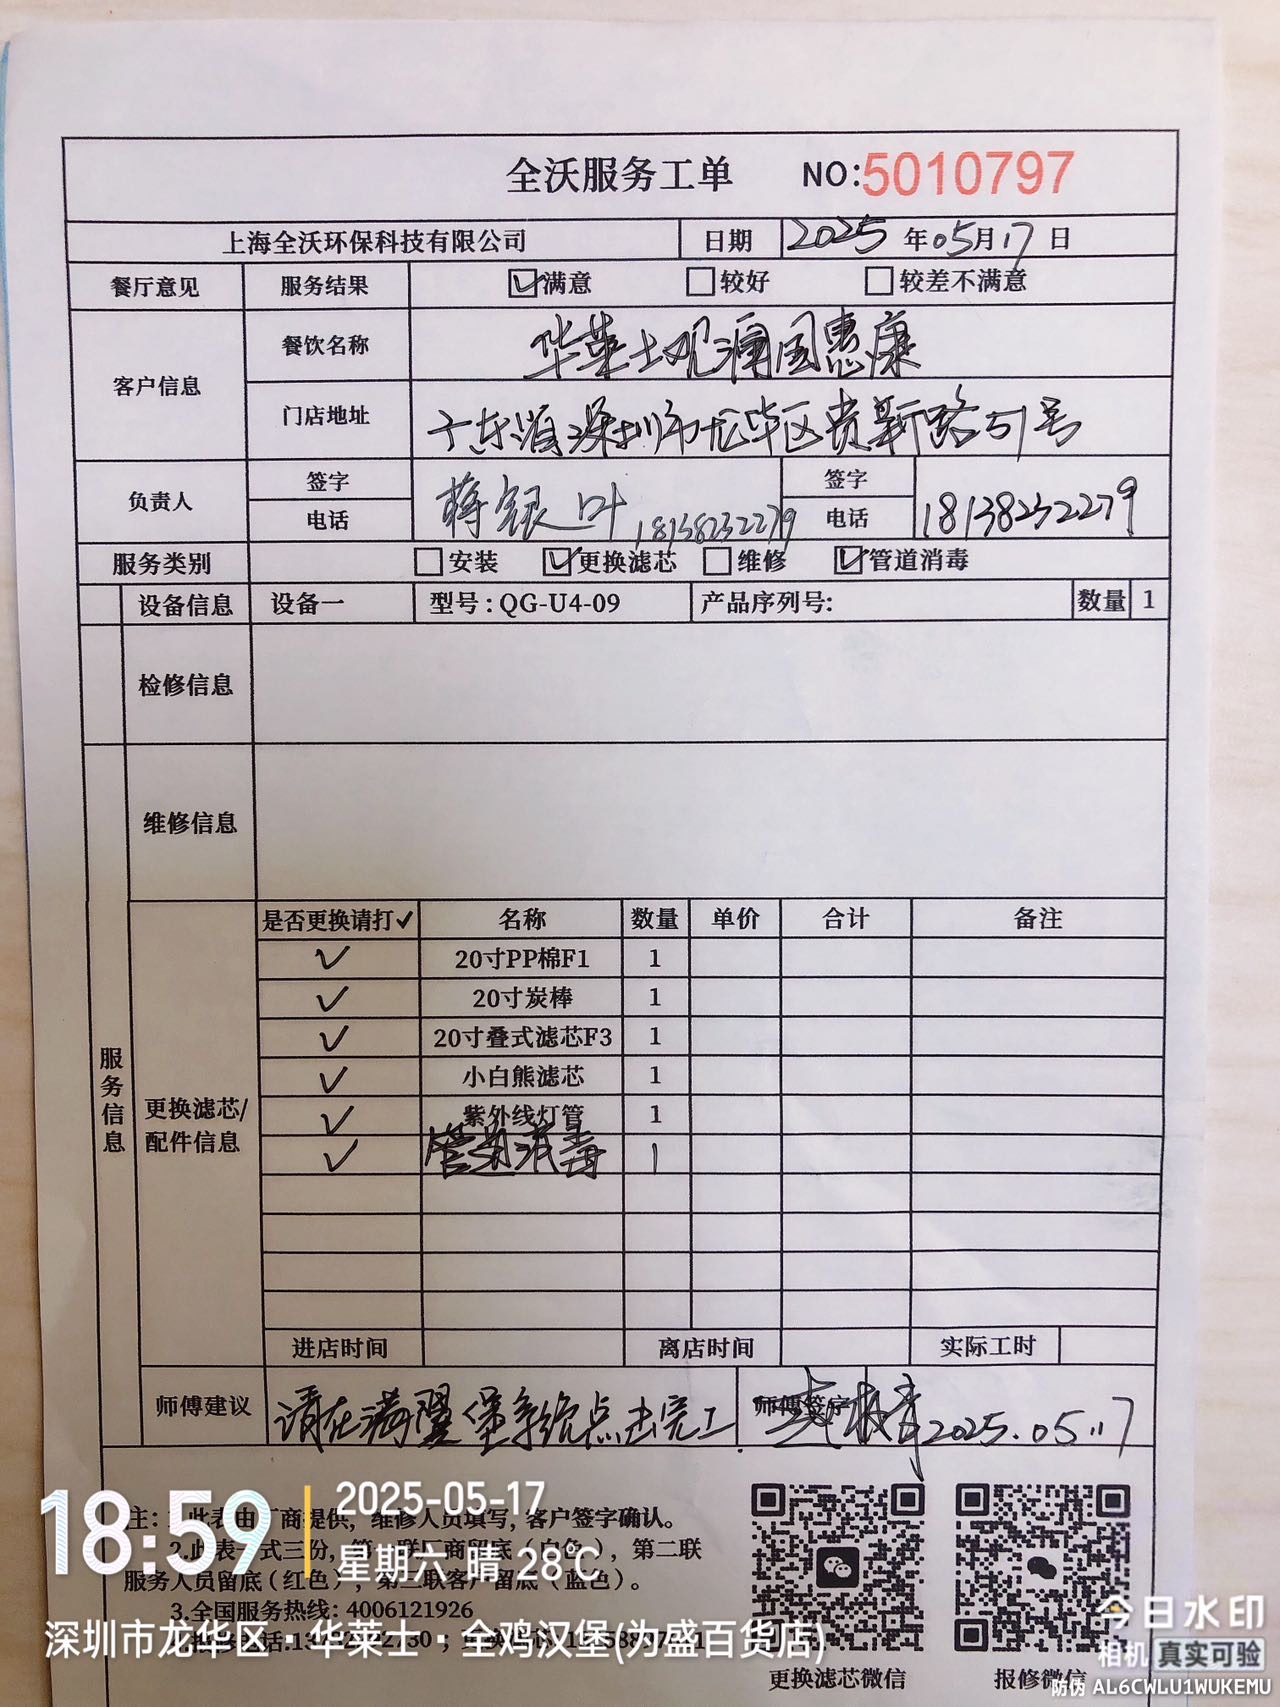 全沃服务工单 NO:5010797
上海全沃环保科技有限公司 日期 2025年05月17日
餐厅意见 服务结果 满意 较好 较差不满意
客户信息 餐饮名称 华莱士观澜国惠康
门店地址 广东省深圳市龙华区贵新路51号
负责人 签字 蒋银叶 签字
电话 18138232279 电话 18138232279
服务类别 安装 更换滤芯 维修 管道消毒
设备信息 设备一 型号:QG-U4-09 产品序列号: 数量 1
检修信息
维修信息
服务信息
更换滤芯/配件信息
是否更换请打✓ 名称 数量 单价 合计 备注
✓ 20寸PP棉F1 1
✓ 20寸炭棒 1
✓ 20寸叠式滤芯F3 1
✓ 小白熊滤芯 1
✓ 紫外线灯管 1
✓ 管道消毒 1
进店时间 离店时间 实际工时
师傅建议 请在满翼堡系统点击完工 师傅签字 2025.05.17
注: 1.此表由厂商提供, 维修人员填写, 客户签字确认。
2.此表一式三份, 第一联厂商留底(白色), 第二联
服务人员留底(红色), 第三联客户留底(蓝色)。
3.全国服务热线: 4006121926
更换滤芯微信 报修微信
18:59 2025-05-17
星期六 晴 28℃
深圳市龙华区·华莱士·全鸡汉堡(为盛百货店)
今日水印
相机 真实可验
防伪 AL6CWLU1WUKEMU